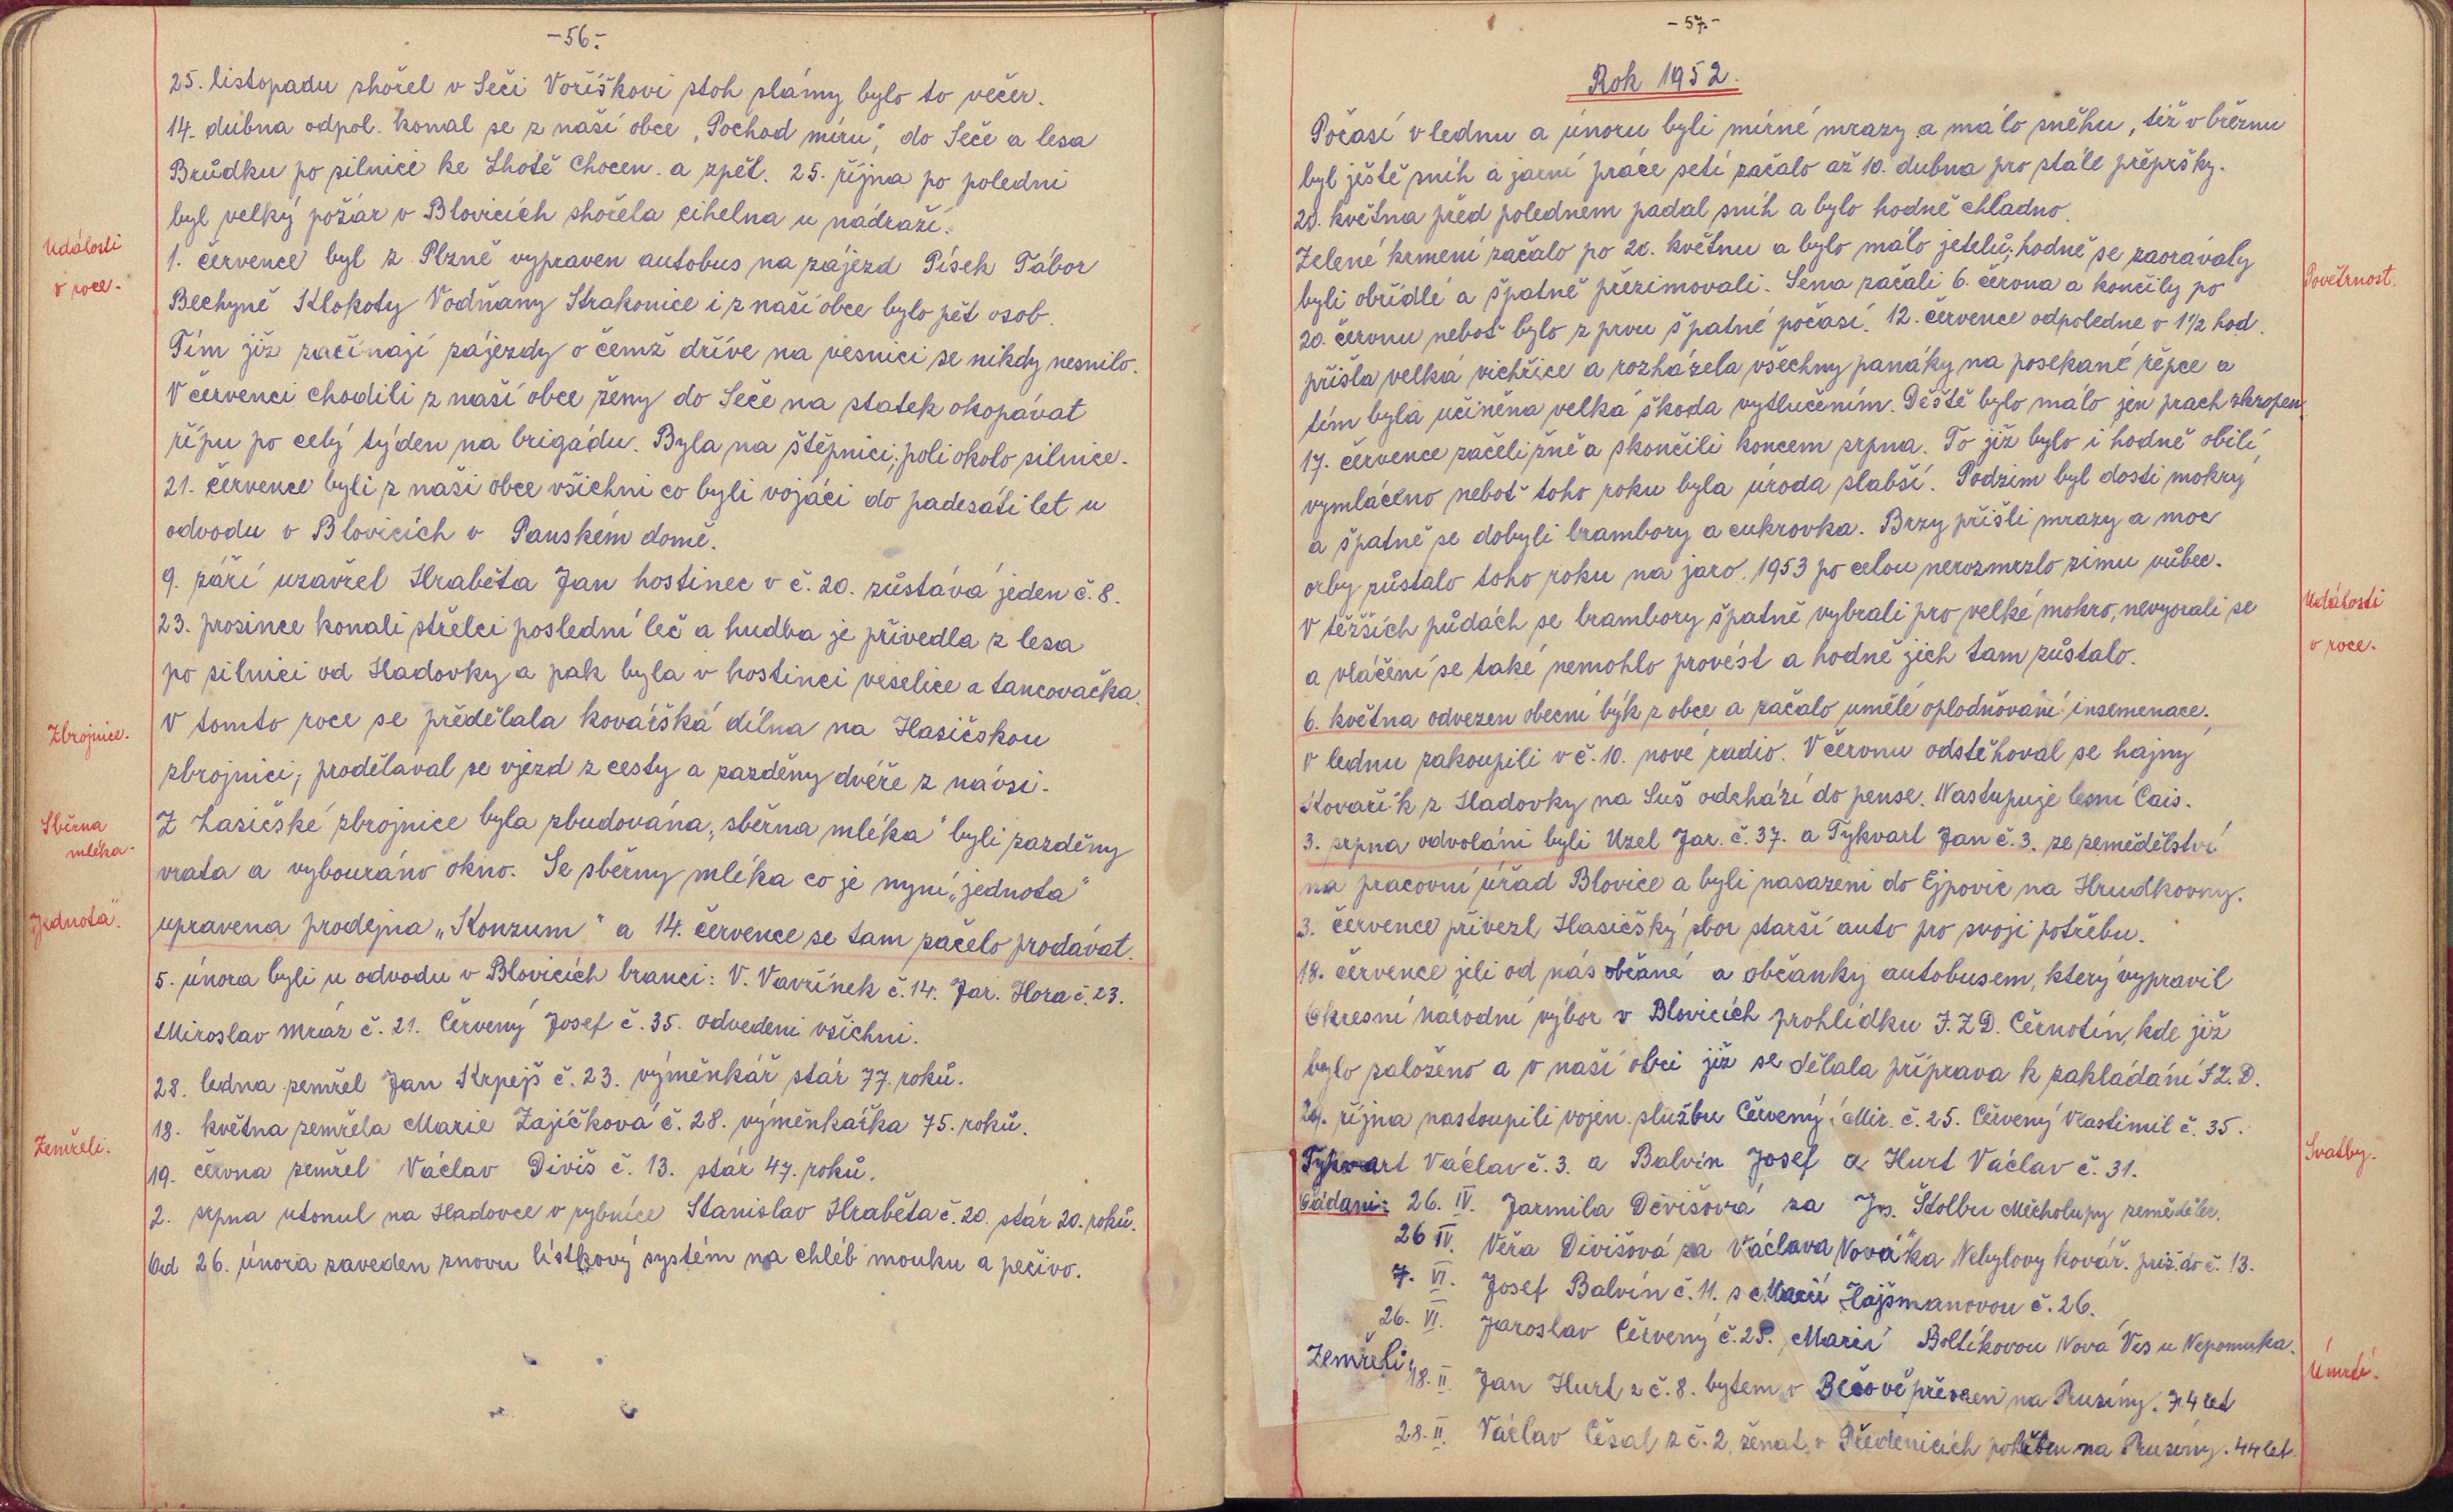 -56.-
25. listopadu shořel v Seči Voříškovi stoh slámy bylo to večer.
14. dubna odpol. konal se z naší obce „Pochod míru", do Seče a lesa
Brůdku po silnici ke Lhotě Chocen. a zpět. 25. října po poledni
byl velký požár v Blovicích shořela cihelna u nádraží.
Události
v roce.
1. července byl z Plzně vypraven autobus na zájezd Písek Tábor
Bechyně Klokoty Vodňany Strakonice i z naší obce bylo pět osob.
Tím již začínají zájezdy o čemž dříve na vesnici se nikdy nesnilo.
V červenci chodili z naší obce ženy do Seče na statek okopávat
řípu po celý týden na brigádu. Byla na štěpnici, poli okolo silnice.
21. července byli z naši obce všichni co byli vojáci do padesáti let u
odvodu v Blovicích v Panském domě.
9. září uzavřel Hraběta Jan hostinec v č. 20. zůstává jeden č. 8.
23. prosince konali střelci poslední leč a hudba je přivedla z lesa
po silnici od Hadovky a pak byla v hostinci veselice a tancovačka.
Zbrojnice.
V tomto roce se předělala kovářská dílna na Hasičskou
zbrojnici, prodělával se vjezd z cesty a zazděny dvéře z návsi.
Sběrna
mléka.
Z Hasičské zbrojnice byla zbudována „sběrna mléka" byli zazděny
vrata a vybouráno okno. Se sběrny mléka co je nyní „jednota"
„Jednota".
upravena prodejna „Konzum" a 14. července se tam začelo prodávat.
5. února byli u odvodu v Blovicích branci: V. Vavřínek č. 14. Jar. Hora č. 23.
Miroslav Mráz č. 21. Červený Josef č. 35. odvedeni všichni.
28. ledna zemřel Jan Krpejš č. 23. výměnkář stár 77. roků.
18. května zemřela Marie Zajíčková č. 28. výměnkářka 75. roků.
Zemřeli.
19. června zemřel Václav Diviš č. 13. stár 47. roků.
2. srpna utonul na Hadovce v rybníce Stanislav Hraběta č. 20. stár 20. roků.
Od 26. února zaveden znovu lístkový systém na chléb mouku a pečivo.
-57.-
Rok 1952.
Počasí v lednu a únoru byli mírné mrazy a málo sněhu, též v březnu
byl ještě sníh a jarní práce setí začalo až 10. dubna pro stále přepršky.
20. května před polednem padal sníh a bylo hodně chladno.
Zelené krmení začalo po 20. květnu a bylo málo jetelů, hodně se zaorávaly
Povětrnost.
byli obřídlé a špatně přezimovali. Sena začali 6. června a končily po
20. červnu neboť bylo z prvu špatné počasí. 12. července odpoledne v 1½ hod.
přišla velká vichřice a rozházela všechny panáky na posekané řepce a
tím byla učiněna velká škoda vytlučením. Děště bylo málo jen prach zkropen
17. července začeli žně a skončili koncem srpna. To již bylo i hodně obilí
vymláceno neboť toho roku byla úroda slabší. Podzim byl dosti mokrý
a špatně se dobyli brambory a cukrovka. Brzy přišli mrazy a moc
orby zůstalo toho roku na jaro. 1953 po celou nerozmrzlo zimu vůbec.
Události
v roce.
V těžších půdách se brambory špatně vybrali pro velké mokro, nevyorali se
a vláčení se také nemohlo provést a hodně jich tam zůstalo.
6. května odvezen obecní býk z obce a začalo umělé oplodňování insemenace.
V lednu zakoupili v č. 10. nové radio. V červnu odstěhoval se hajný
Kovařík z Hadovky na Suš odchází do pense. Nastupuje lesní Cais.
3. srpna odvoláni byli Uzel Jar. č. 37. a Tykvart Jan č. 3. ze zemědělství
na pracovní úřad Blovice a byli nasazeni do Ejpovic na Hrudkovny.
3. července přivezl Hasičský sbor starší auto pro svoji potřebu.
18. července jeli od nás občané a občanky autobusem, který vypravil
Okresní národní výbor v Blovicích prohlídku J.Z.D. Černotín, kde již
bylo založeno a v naší obci již se dělala příprava k zakládání J.Z.D.
29. října nastoupili vojen. službu Červený Mir. č. 25. Červený Vlastimil č. 35.
Tykvart Václav č. 3. a Balvín Josef a Hurt Václav č. 31.
Svatby.
Oddani: 26. IV. Jarmila Devišová za Js. Štolbu Měcholupy zemědělec.
26 IV. Věra Divišová za Václava Nováka Nebylovy kovář. přiž. do č. 13.
7. VI. Josef Balvín č. 11. s Marií Hajšmanovou č. 26.
26. VI. Jaroslav Červený č. 25. Marií Boltíkovou Nová Ves u Nepomuka.
Úmrtí.
Zemřeli: 18. II. Jan Hurt z č. 8. bytem v převezen na Prusiny. 74 let
28. II. Václav Češal z č. 2. ženat v Předenicích pohřben na Prusiny. 44 let.